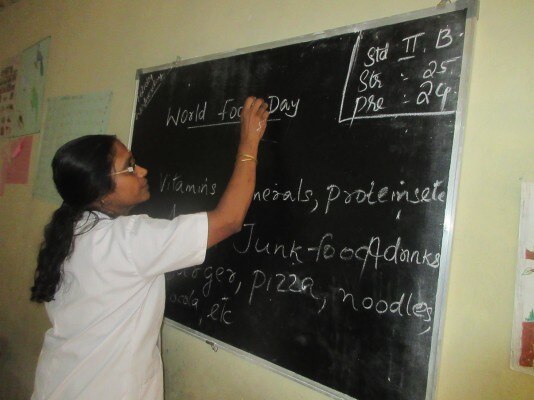 Std II B
Str : 25
Pre : 24
World Food Day
Vitamins nerals, proteins etc
Junk-food & drinks
Burger, pizza, noodles,
cola, etc